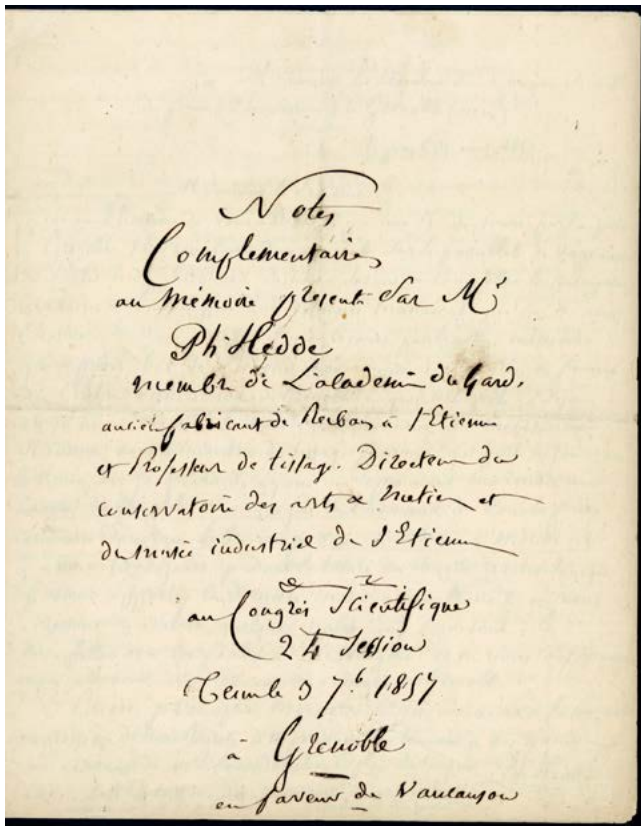 Notes
Complementaires
au mémoire presenté par Mr
Ph Hedde
membre de L'academie du Gard,
ancien fabricant de Rubans a St Etienne
et Professeur de tissage. Directeur du
conservatoire des arts & metiers et
du musée industriel de St Etienne
au Congrès Scientifique
24 Session
Tenu le 3 7.b 1857
à Grenoble
en faveur de Vaucanson